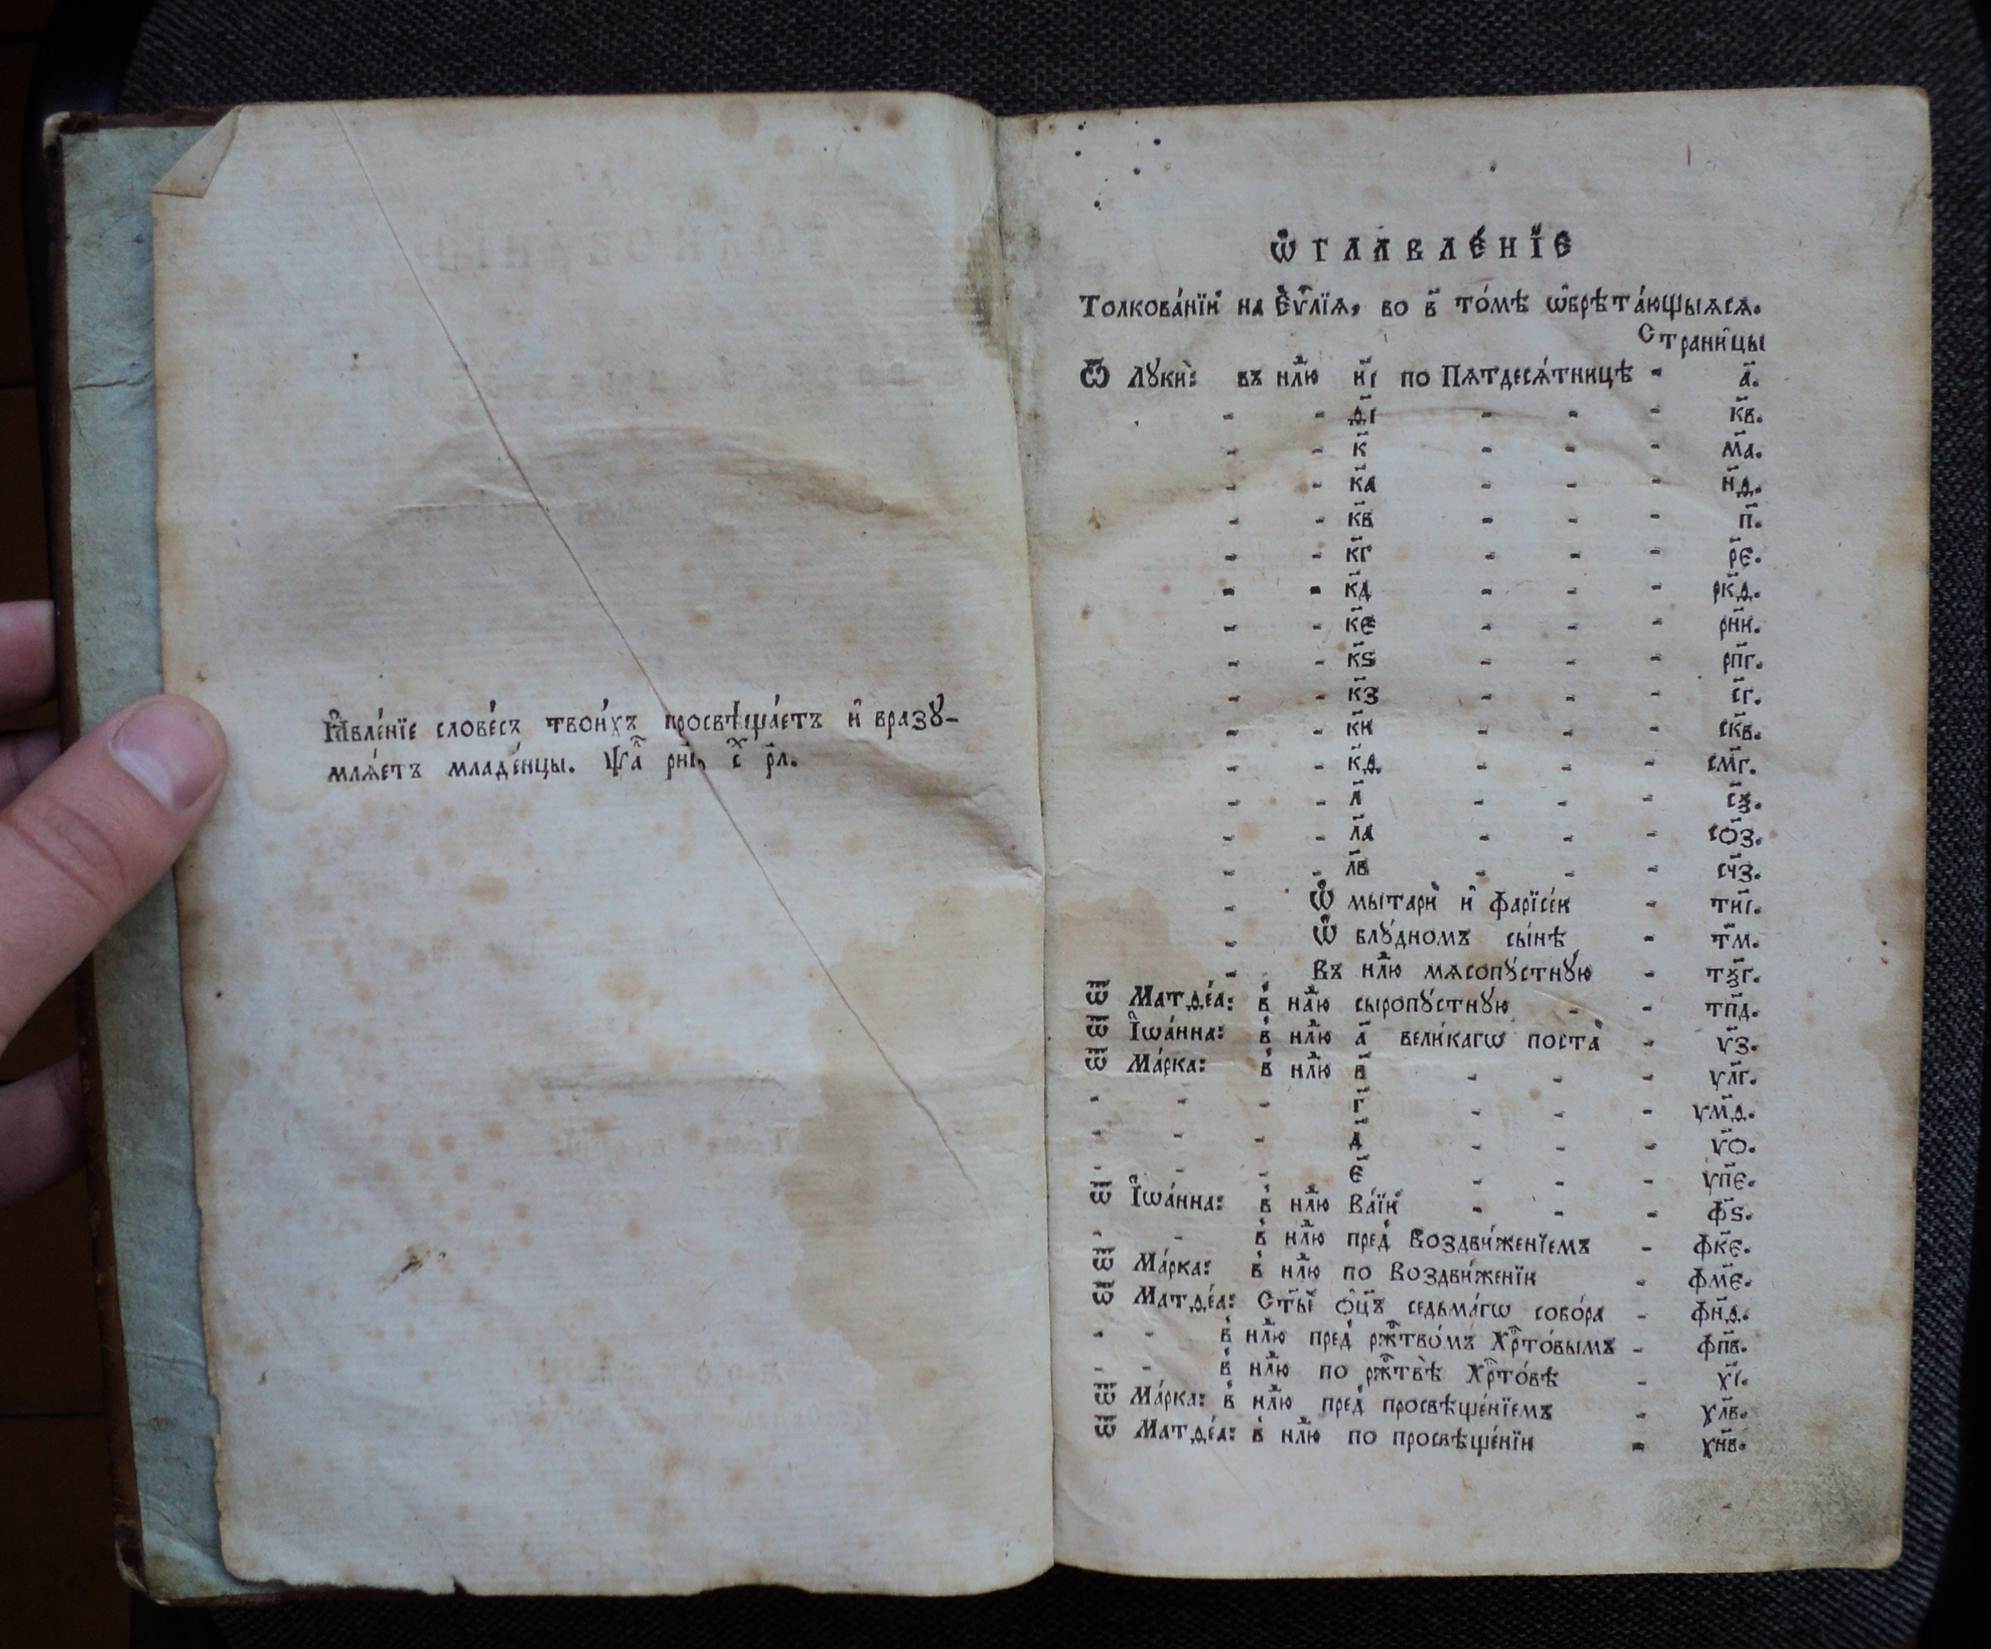 Ꙗ҆вле́нїе слове́съ твои́хъ просвѣща́етъ и҆ вразꙋ-
млѧ́етъ младе́нцы. Ѱа рн҃і, с рл.
Ѡ҆ГЛАВЛЕ́НЇЕ
Толкова́нїй на Є҆ѵ҃лїѧ, во в҃ то́мѣ ѡ҆брѣта́ющыѧсѧ.
Страни̑цы
Ѿ Лꙋки̑: въ нл҃ю и҃і по Пѧтдесѧ́тницѣ - а҃.
- - ѳ҃і - - - к҃в.
- - к҃ - - - м҃а.
- - к҃а - - - н҃ѳ.
- - к҃в - - - п҃.
- - к҃г - - - р҃є.
- - к҃д - - - рк҃ѳ.
- - к҃є - - - рн҃и.
- - к҃ѕ - - - рп҃г.
- - к҃з - - - с҃г.
- - к҃и - - - ск҃в.
- - к҃ѳ - - - см҃г.
- - л҃ - - - сѯ҃.
- - л҃а - - - со҃з.
- - л҃в - - - сч҃з.
- Ѡ҆ мытарѝ и҆ фарїсе́и - ти҃і.
- Ѡ҆ блꙋ́дномъ сы́нѣ - тм҃.
- Въ нл҃ю мѧсопꙋ́стнꙋю - тѯ҃г.
Ѿ Матѳе́а: в̾ нл҃ю сыропꙋ́стнꙋю - - тп҃д.
Ѿ І҆ѡа́нна: в̾ нл҃ю а҃ вели́кагѡ поста̀ - ѵ҃з.
Ѿ Ма́рка: в̾ нл҃ю в҃ - - - ѵл҃г.
- - - г҃ - - - ѵм҃ѳ.
- - - д҃ - - - ѵ҃о.
- - - є҃ - - - ѵп҃є.
Ѿ І҆ѡа́нна: в̾ нл҃ю Ва́їй - - - ф҃ѕ.
- - в̾ нл҃ю пред̾ Воздви́женїемъ - фк҃є.
Ѿ Ма́рка: в̾ нл҃ю по Воздви́женїи - фм҃є.
Ѿ Матѳе́а: Ст҃ы́й ѻ҆ц҃ъ седьма́гѡ собо́ра - фн҃ѳ.
- - в̾ нл҃ю пред̾ рж҃тво́мъ Хр҃то́вымъ - фп҃в.
- - в̾ нл҃ю по рж҃твѣ̀ Хр҃то́вѣ - х҃і.
Ѿ Ма́рка: в̾ нл҃ю пред̾ просвѣще́нїемъ - хл҃в.
Ѿ Матѳе́а: в̾ нл҃ю по просвѣще́нїи - хн҃в.